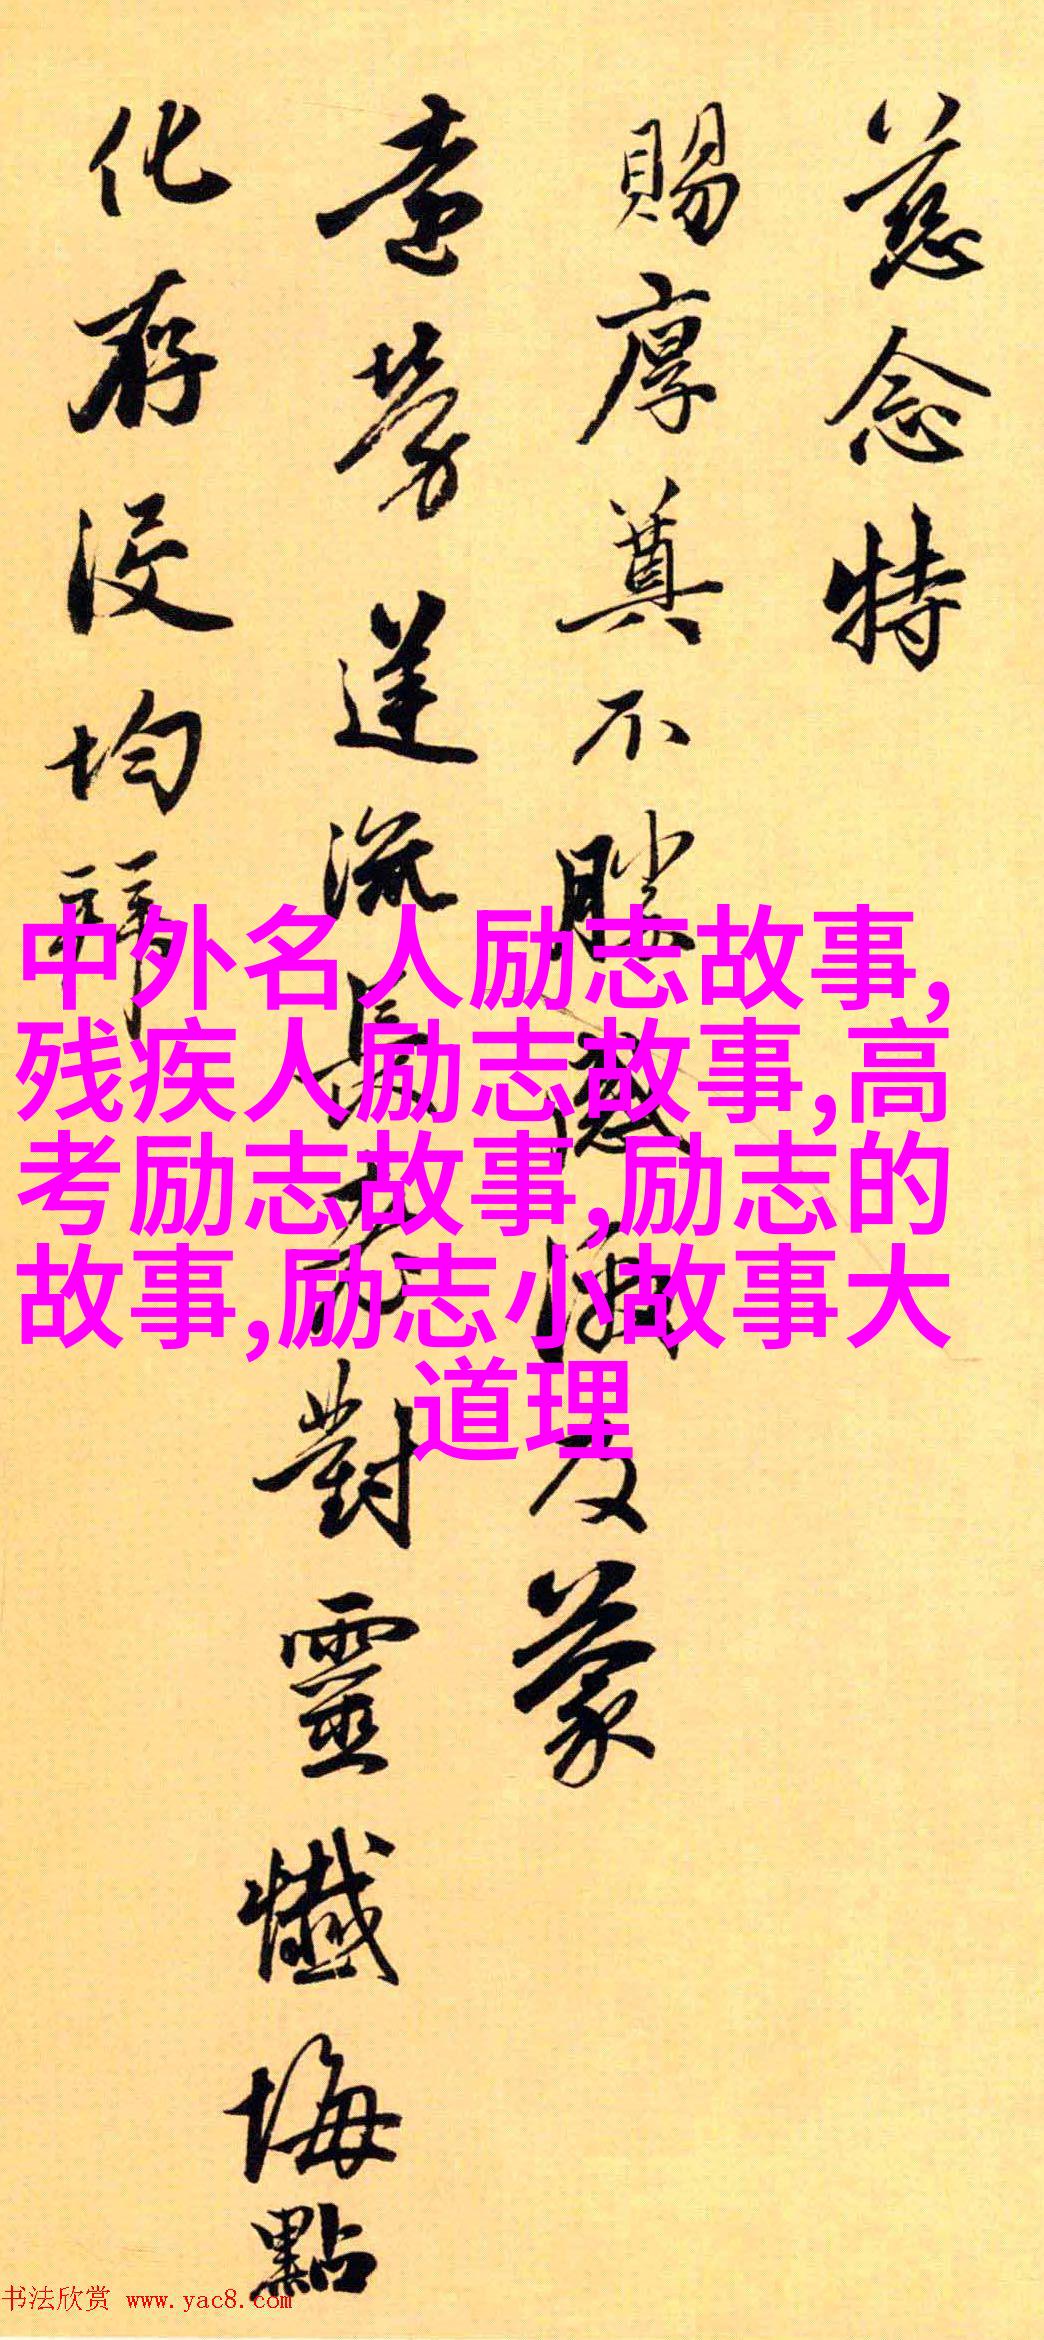 慈念特
賜厚奠不勝感激及蒙
遠勞運流長老對靈懺悔點
化存没均
中外名人励志故事,
残疾人励志故事,高
考励志故事,励志的
故事,励志小故事大
道理
书法欣赏 www.yac8.com